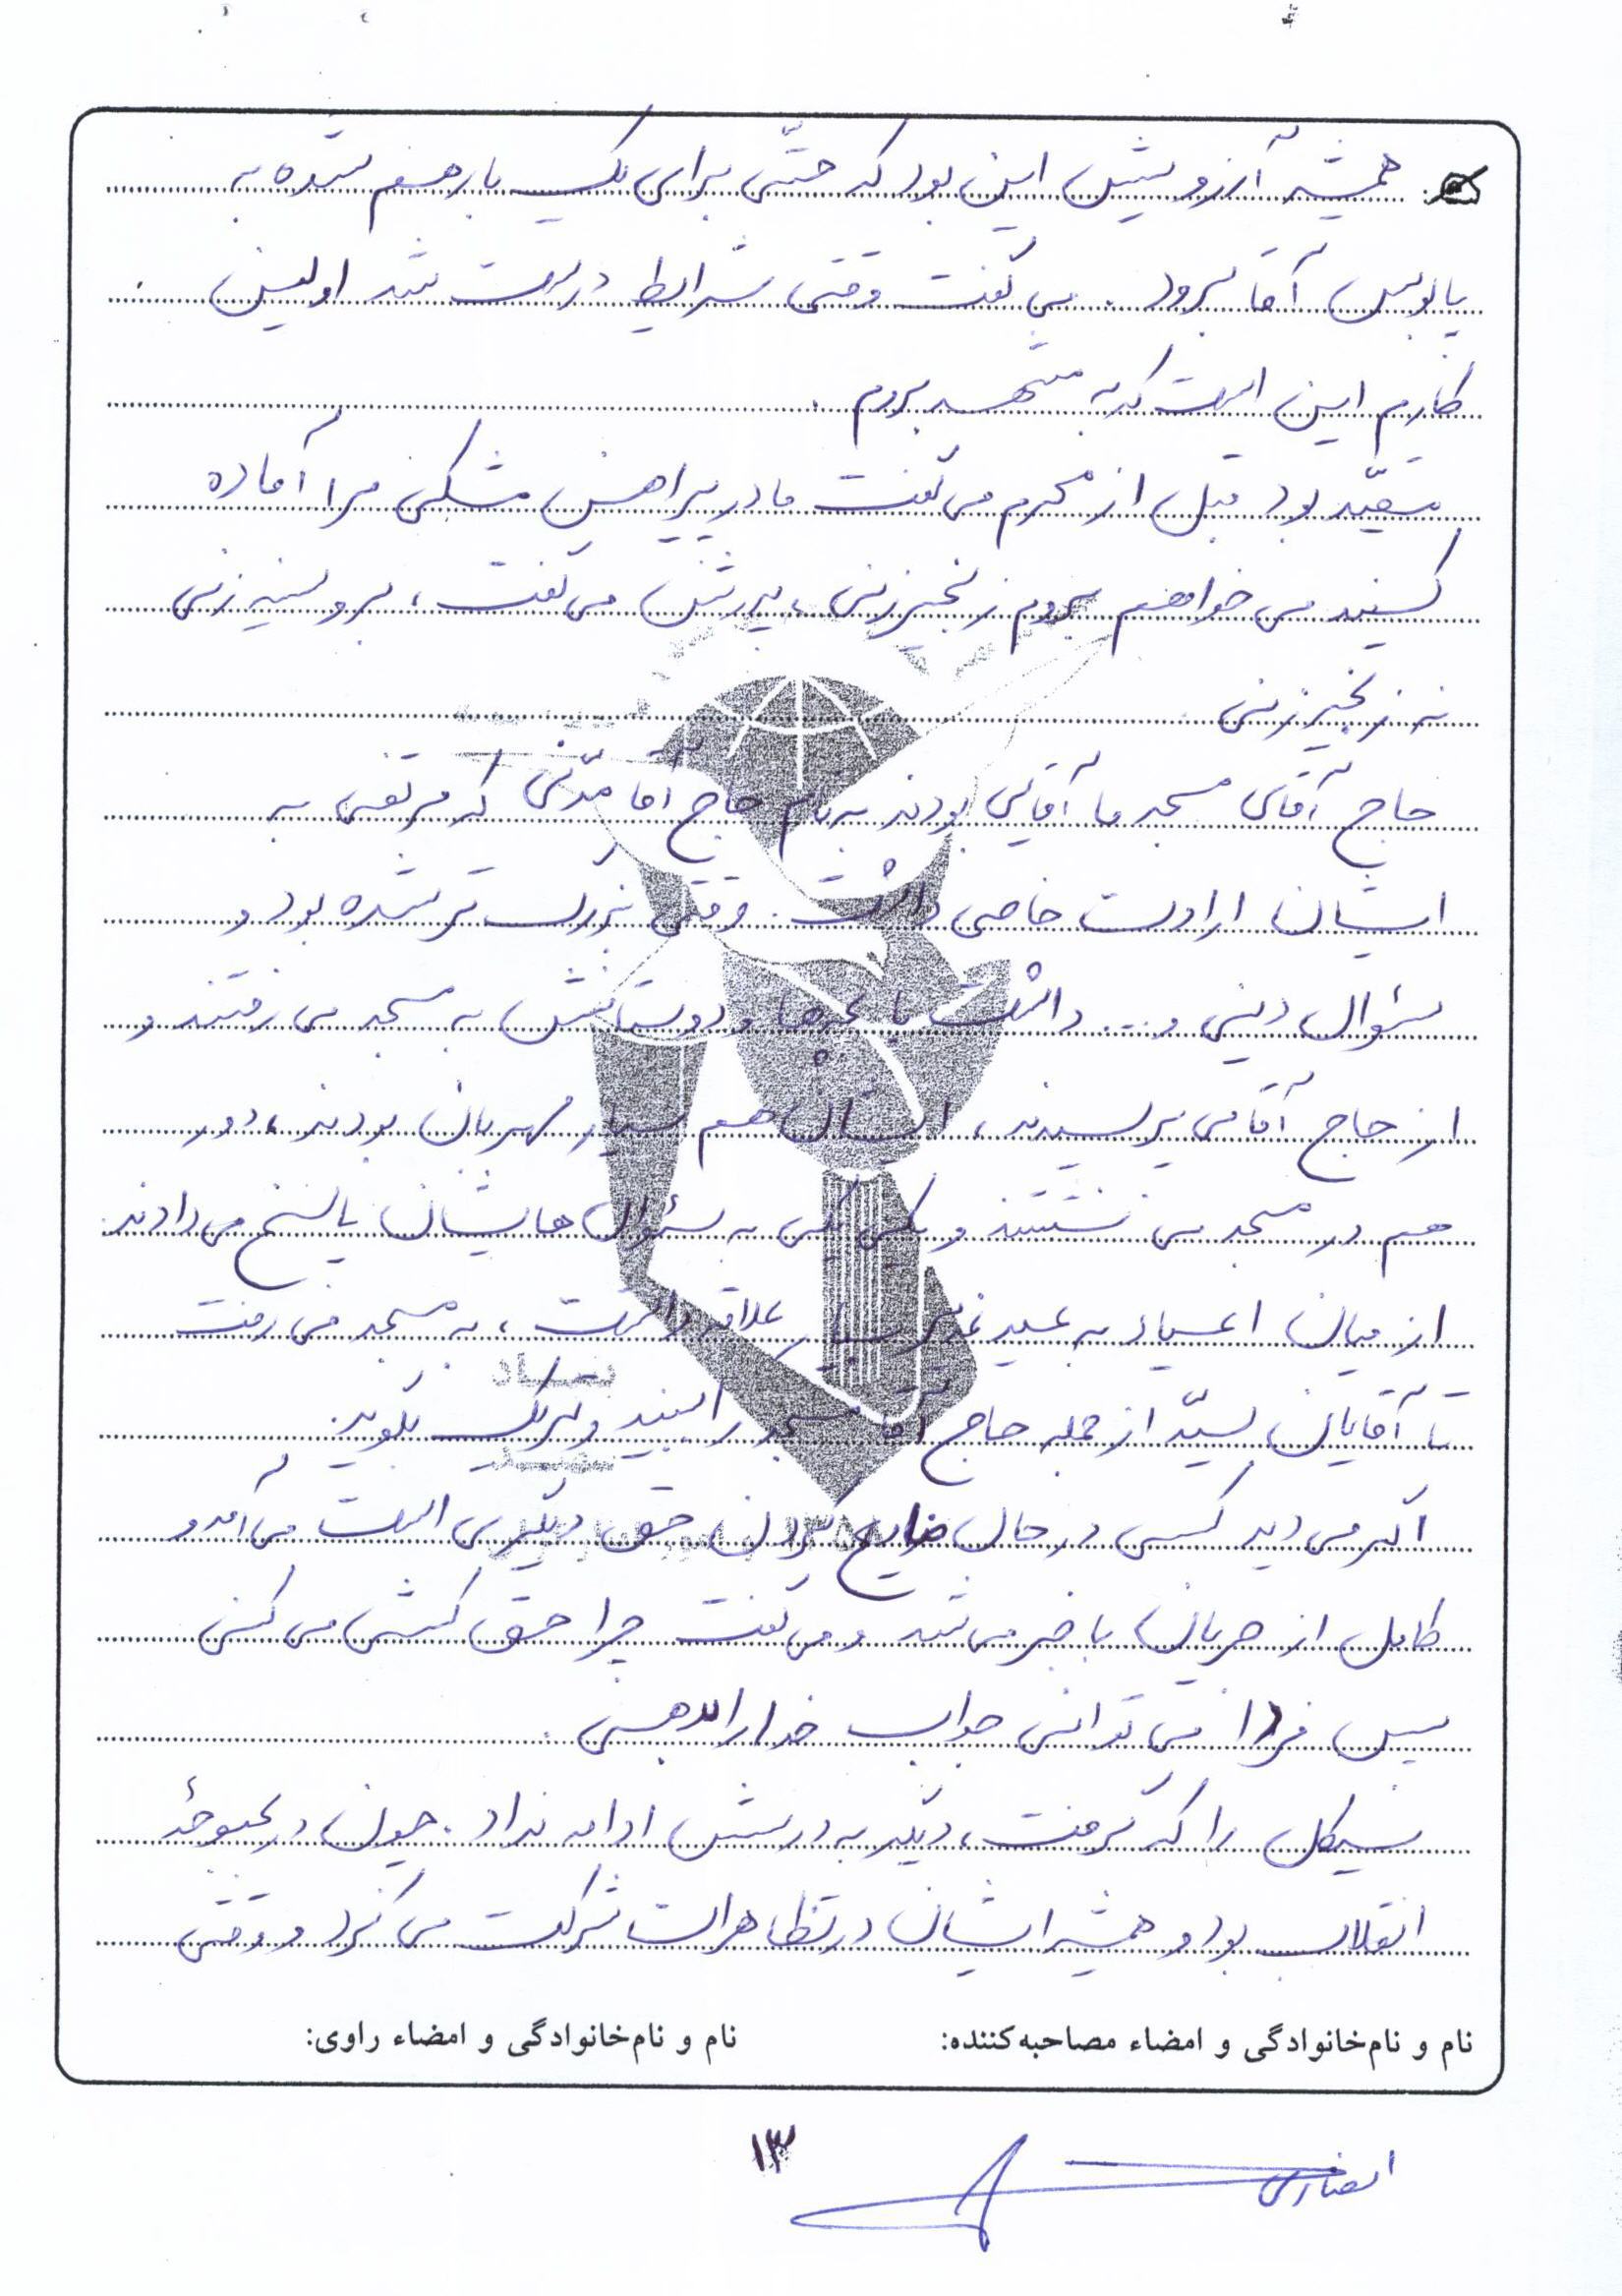 همیشه آرزویش این بود که حتّی برای یک بار هم شده به
پابوس آقا برود . می گفت وقتی شرایط درست شد اولین
کارم این است که به مشهد بروم .
مقیّد بود قبل از محرم می گفت مادر پیراهن مشکی مرا آماده
کنید می خواهم بروم زنجیرزنی ، پدرش می گفت ، برو سینه زنی
نه زنجیرزنی
حاج آقای مسجد ما آقائی بودند به نام حاج آقا مدّنی که مرتضی به
ایشان ارادت خاصی داشت . وقتی بزرگ تر شده بود و
سئوال دینی و ... داشت با بچه ها و دوستانش به مسجد می رفتند و
از حاج آقا می پرسیدند ، ایشان هم بسیار مهربان بودند ، دور
هم در مسجد می نشستند و یکی یکی به سئوال هایشان پاسخ می دادند
از میان اعیاد به عید غدیر علاقه داشت ، به مسجد می رفت
تا آقایان سیّد از جمله حاج آقا مسجد را ببیند و تبریک بگوید .
اگر می دید کسی در حال ضایع کردن حق دیگری است می آمد و
کامل از جریان با خبر می شد و می گفت چرا حق کشی می کنی
پس فردا می توانی جواب خدا را بدهی .
سیکل را که گرفت ، دیگر به درسش ادامه نداد . چون در بحبوحهٔ
انقلاب بود و همیشه ایشان در تظاهرات شرکت می کرد و وقتی
نام و نام‌خانوادگی و امضاء مصاحبه‌کننده:
نام و نام‌خانوادگی و امضاء راوی:
۱۳
انصاری